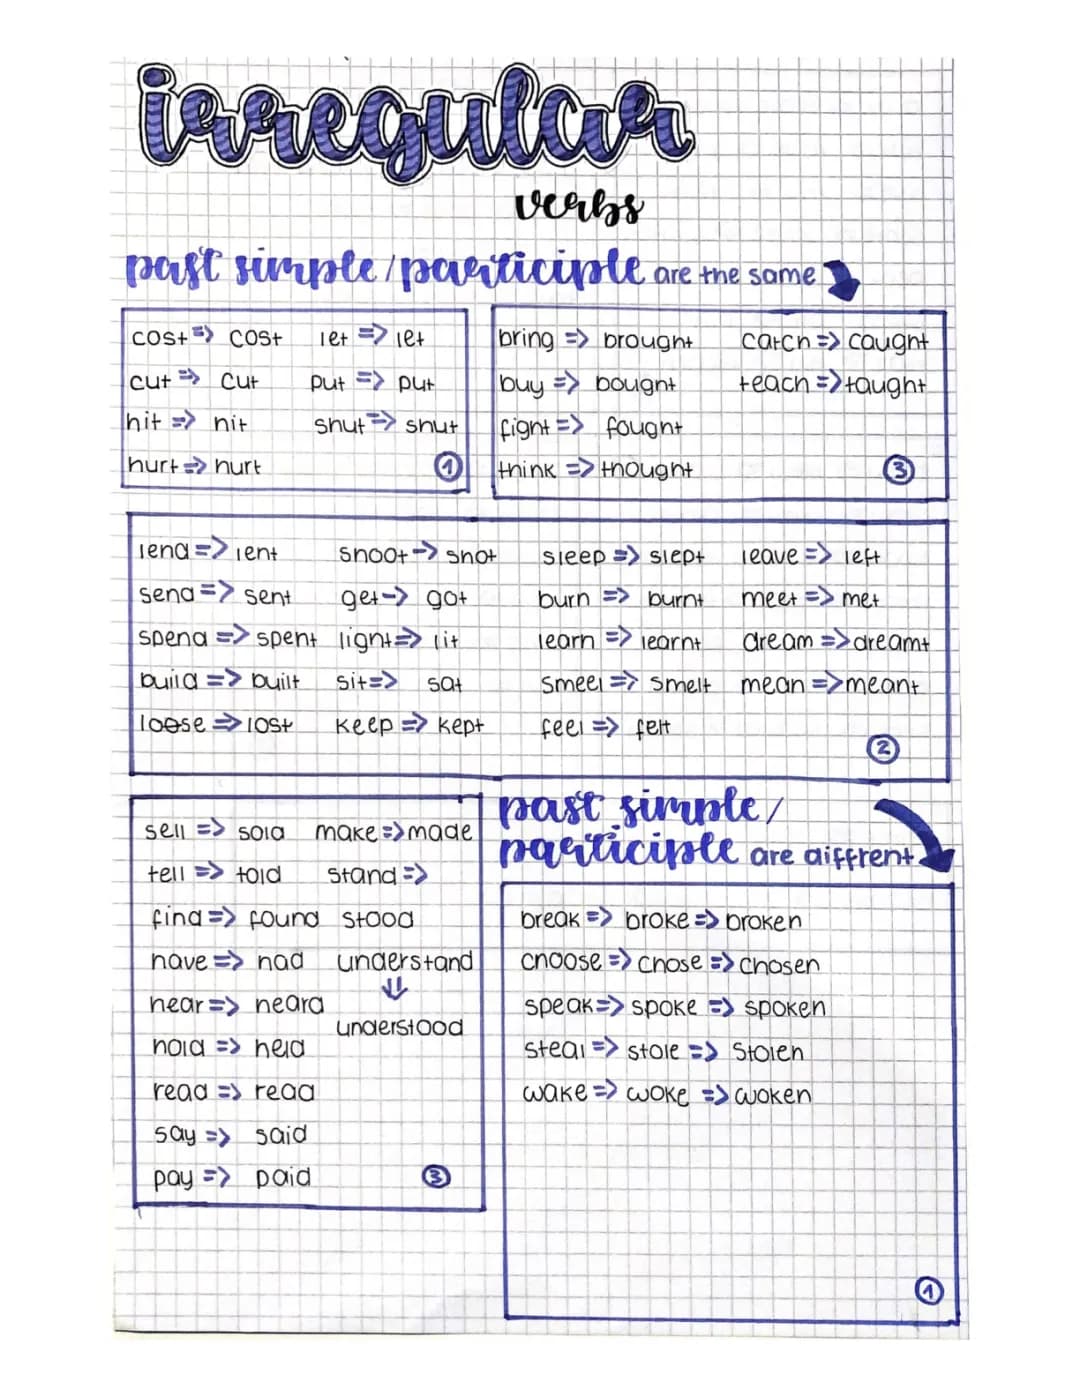 irregular
verbs
past simple/participle are the same
cost => cost let => let
cut => cut put => put
hit => hit shut => shut
hurt => hurt 1
bring => brought catch => caught
buy => bought teach => taught
fight => fought
think => thought 3
lend => lent shoot -> shot sleep => slept leave => left
send => sent get -> got burn => burnt meet => met
spend => spent light => lit learn => learnt dream => dreamt
build => built sit => sat smeel => smelt mean => meant
loose => lost keep => kept feel => felt
2
sell => sold make => made
tell => told stand =>
find => found stood
have => had understand
hear => heard ⇓
understood
hold => held
read => read
say => said
pay => paid 3
past simple/
participle are diffrent
break => broke => broken
choose => chose => chosen
speak => spoke => spoken
steal => stole => stolen
wake => woke => woken
1